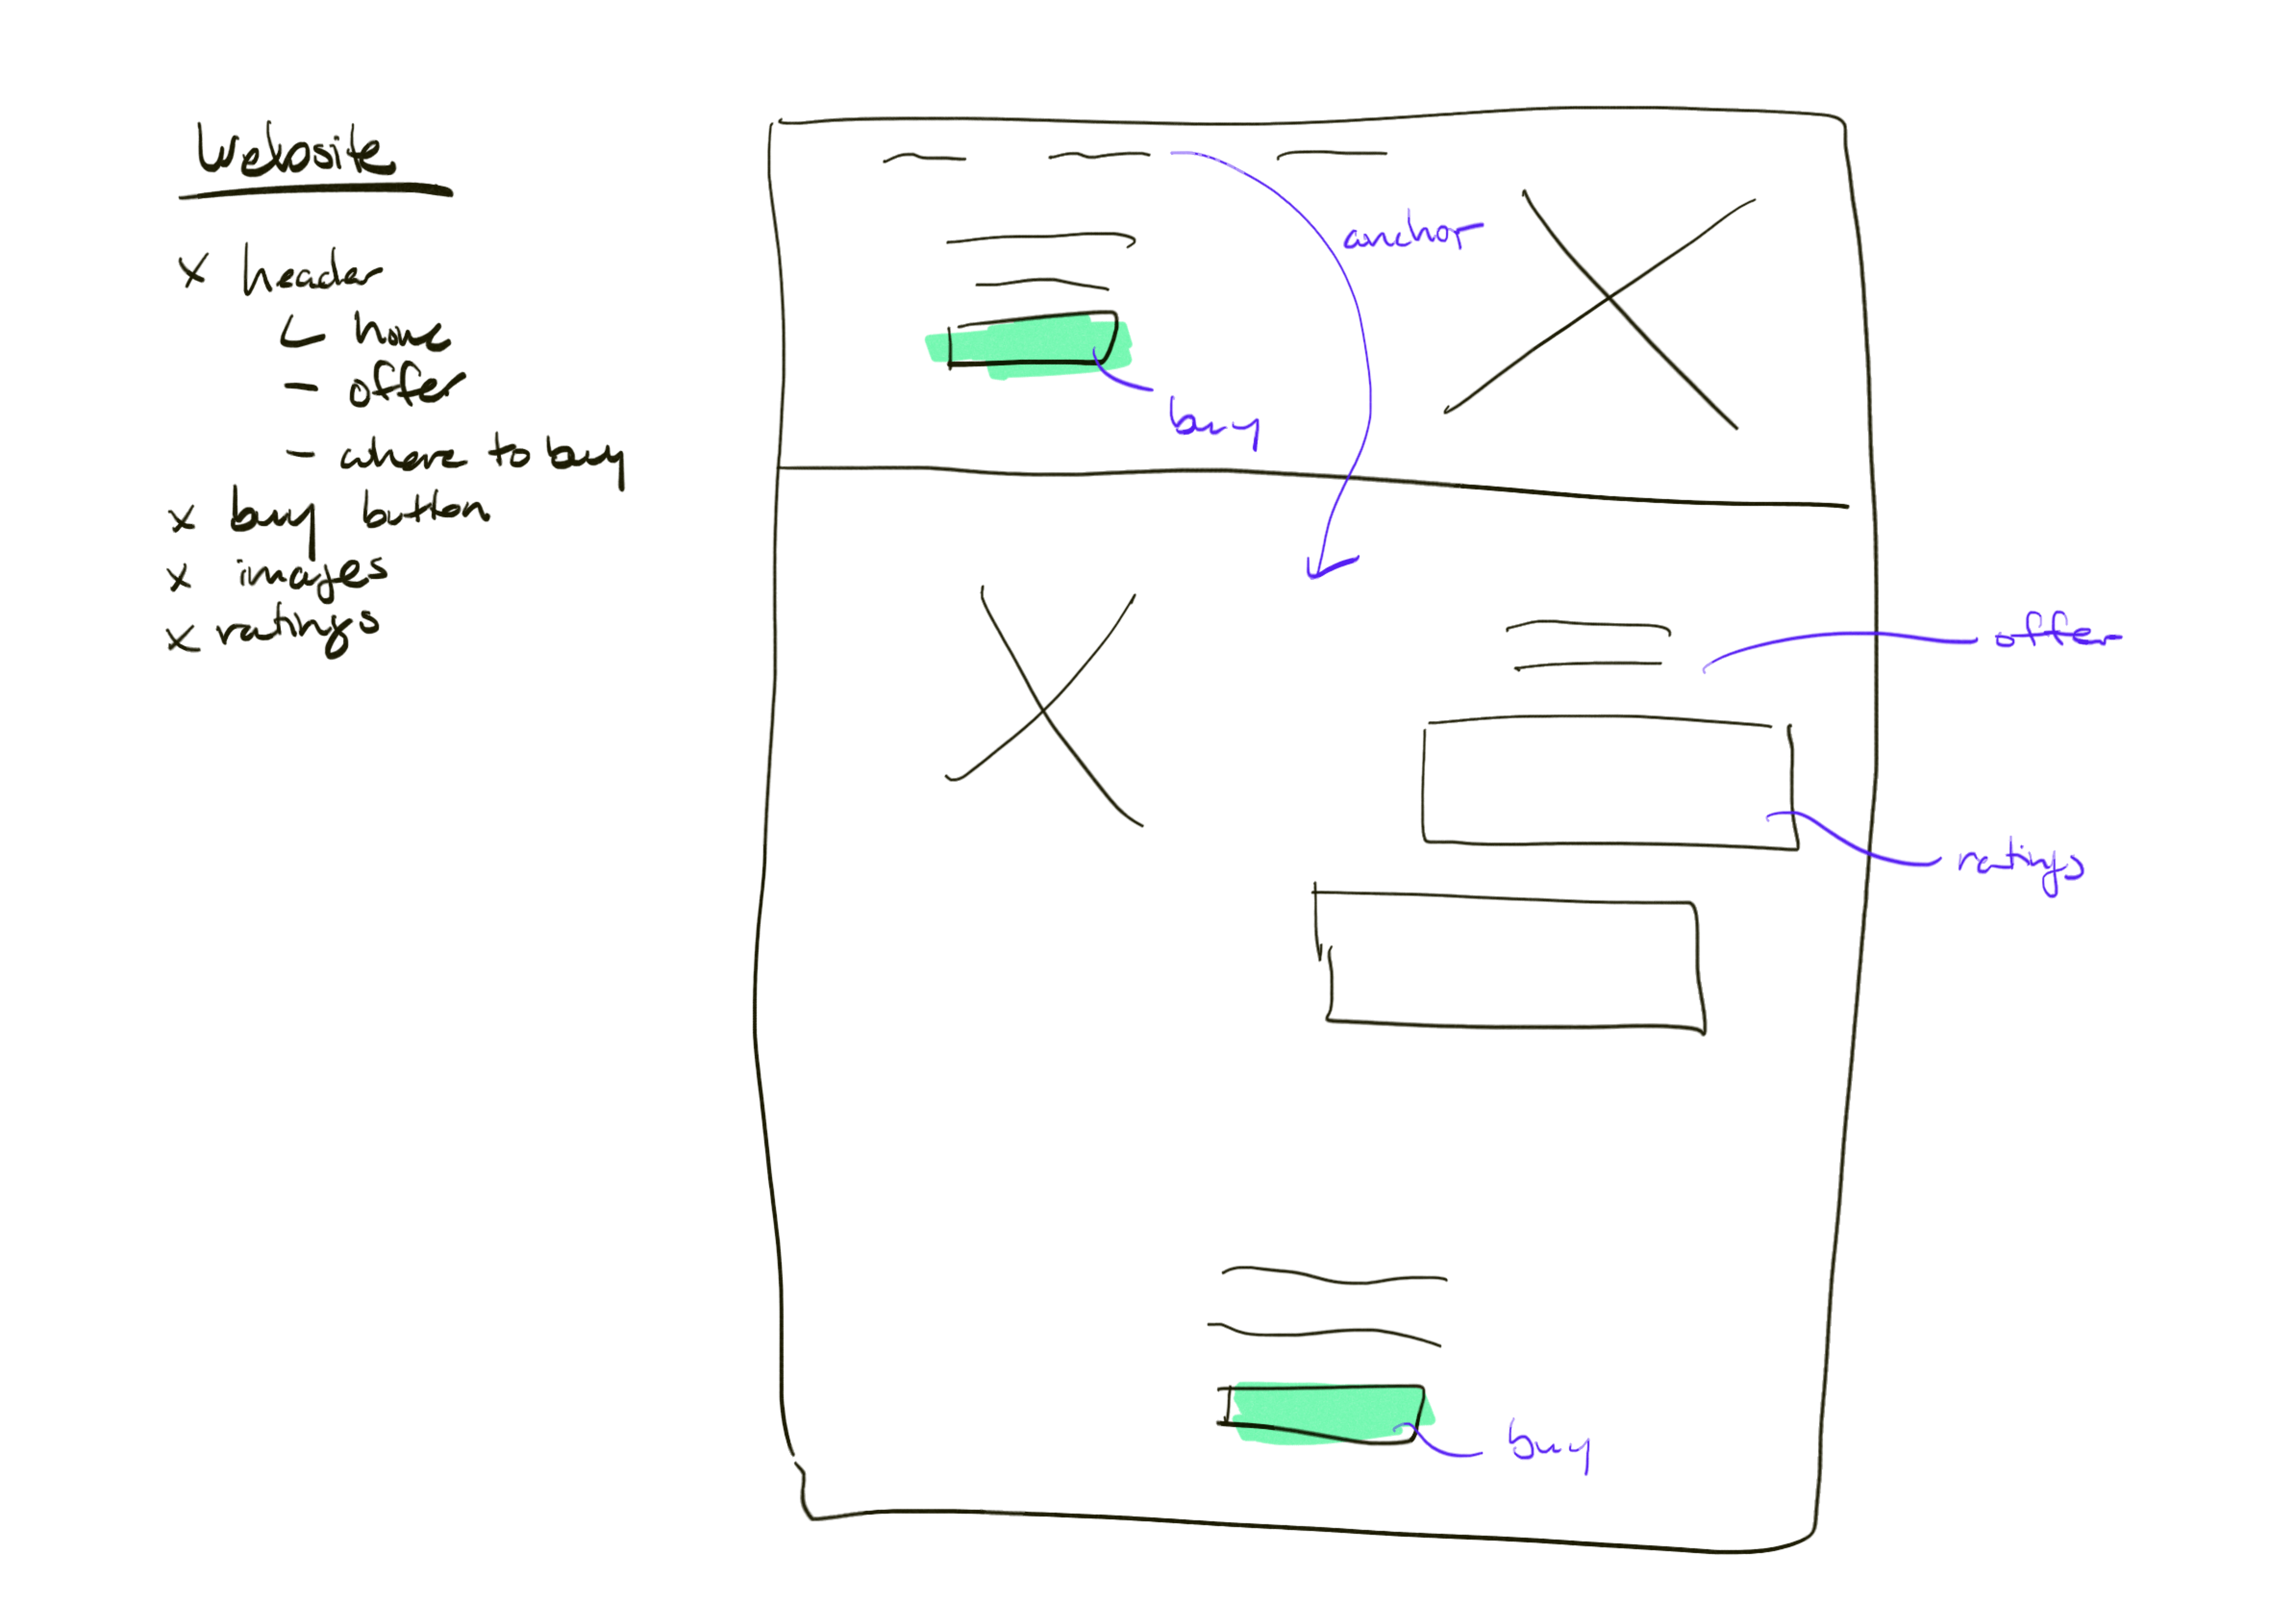 Website
x header
home
- offer
- where to buy
x buy button
x images
x ratings
anchor
buy
offer
ratings
buy